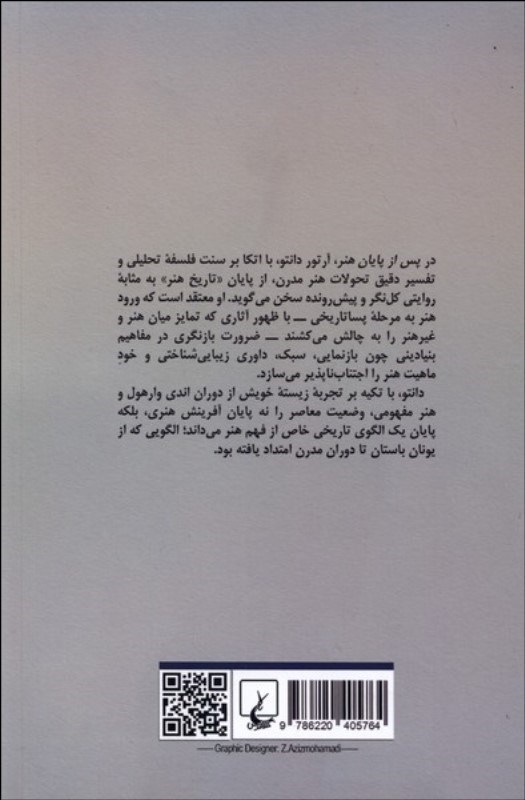 در پس از پایان هنر، آرتور دانتو، با اتکا بر سنت فلسفهٔ تحلیلی و
تفسیر دقیق تحولات هنر مدرن، از پایان «تاریخ هنر» به مثابهٔ
روایتی کل‌نگر و پیش‌رونده سخن می‌گوید. او معتقد است که ورود
هنر به مرحلهٔ پساتاریخی ــ با ظهور آثاری که تمایز میان هنر و
غیرهنر را به چالش می‌کشند ــ ضرورت بازنگری در مفاهیم
بنیادینی چون بازنمایی، سبک، داوری زیبایی‌شناختی و خودِ
ماهیت هنر را اجتناب‌ناپذیر می‌سازد.
دانتو، با تکیه بر تجربهٔ زیستهٔ خویش از دوران اندی وارهول و
هنر مفهومی، وضعیت معاصر را نه پایان آفرینش هنری، بلکه
پایان یک الگوی تاریخی خاص از فهم هنر می‌داند؛ الگویی که از
یونان باستان تا دوران مدرن امتداد یافته بود.
9 786220 405764
Graphic Designer: Z.Azizmohamadi